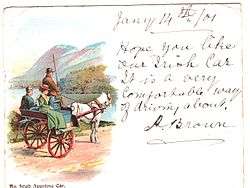 Jany 14th/01
Hope you like
our Irish Car
It is a very
comfortable way
of driving about.
A. Brown
An Irish Jaunting Car.